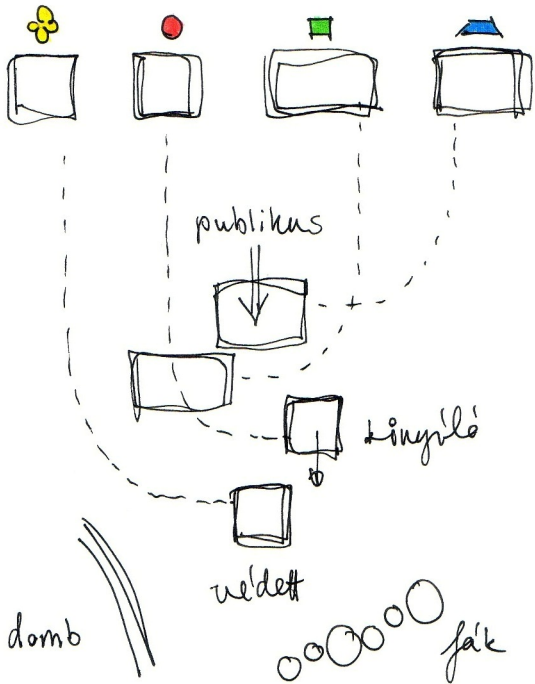 publikus
kinyúló
védett
domb
fák